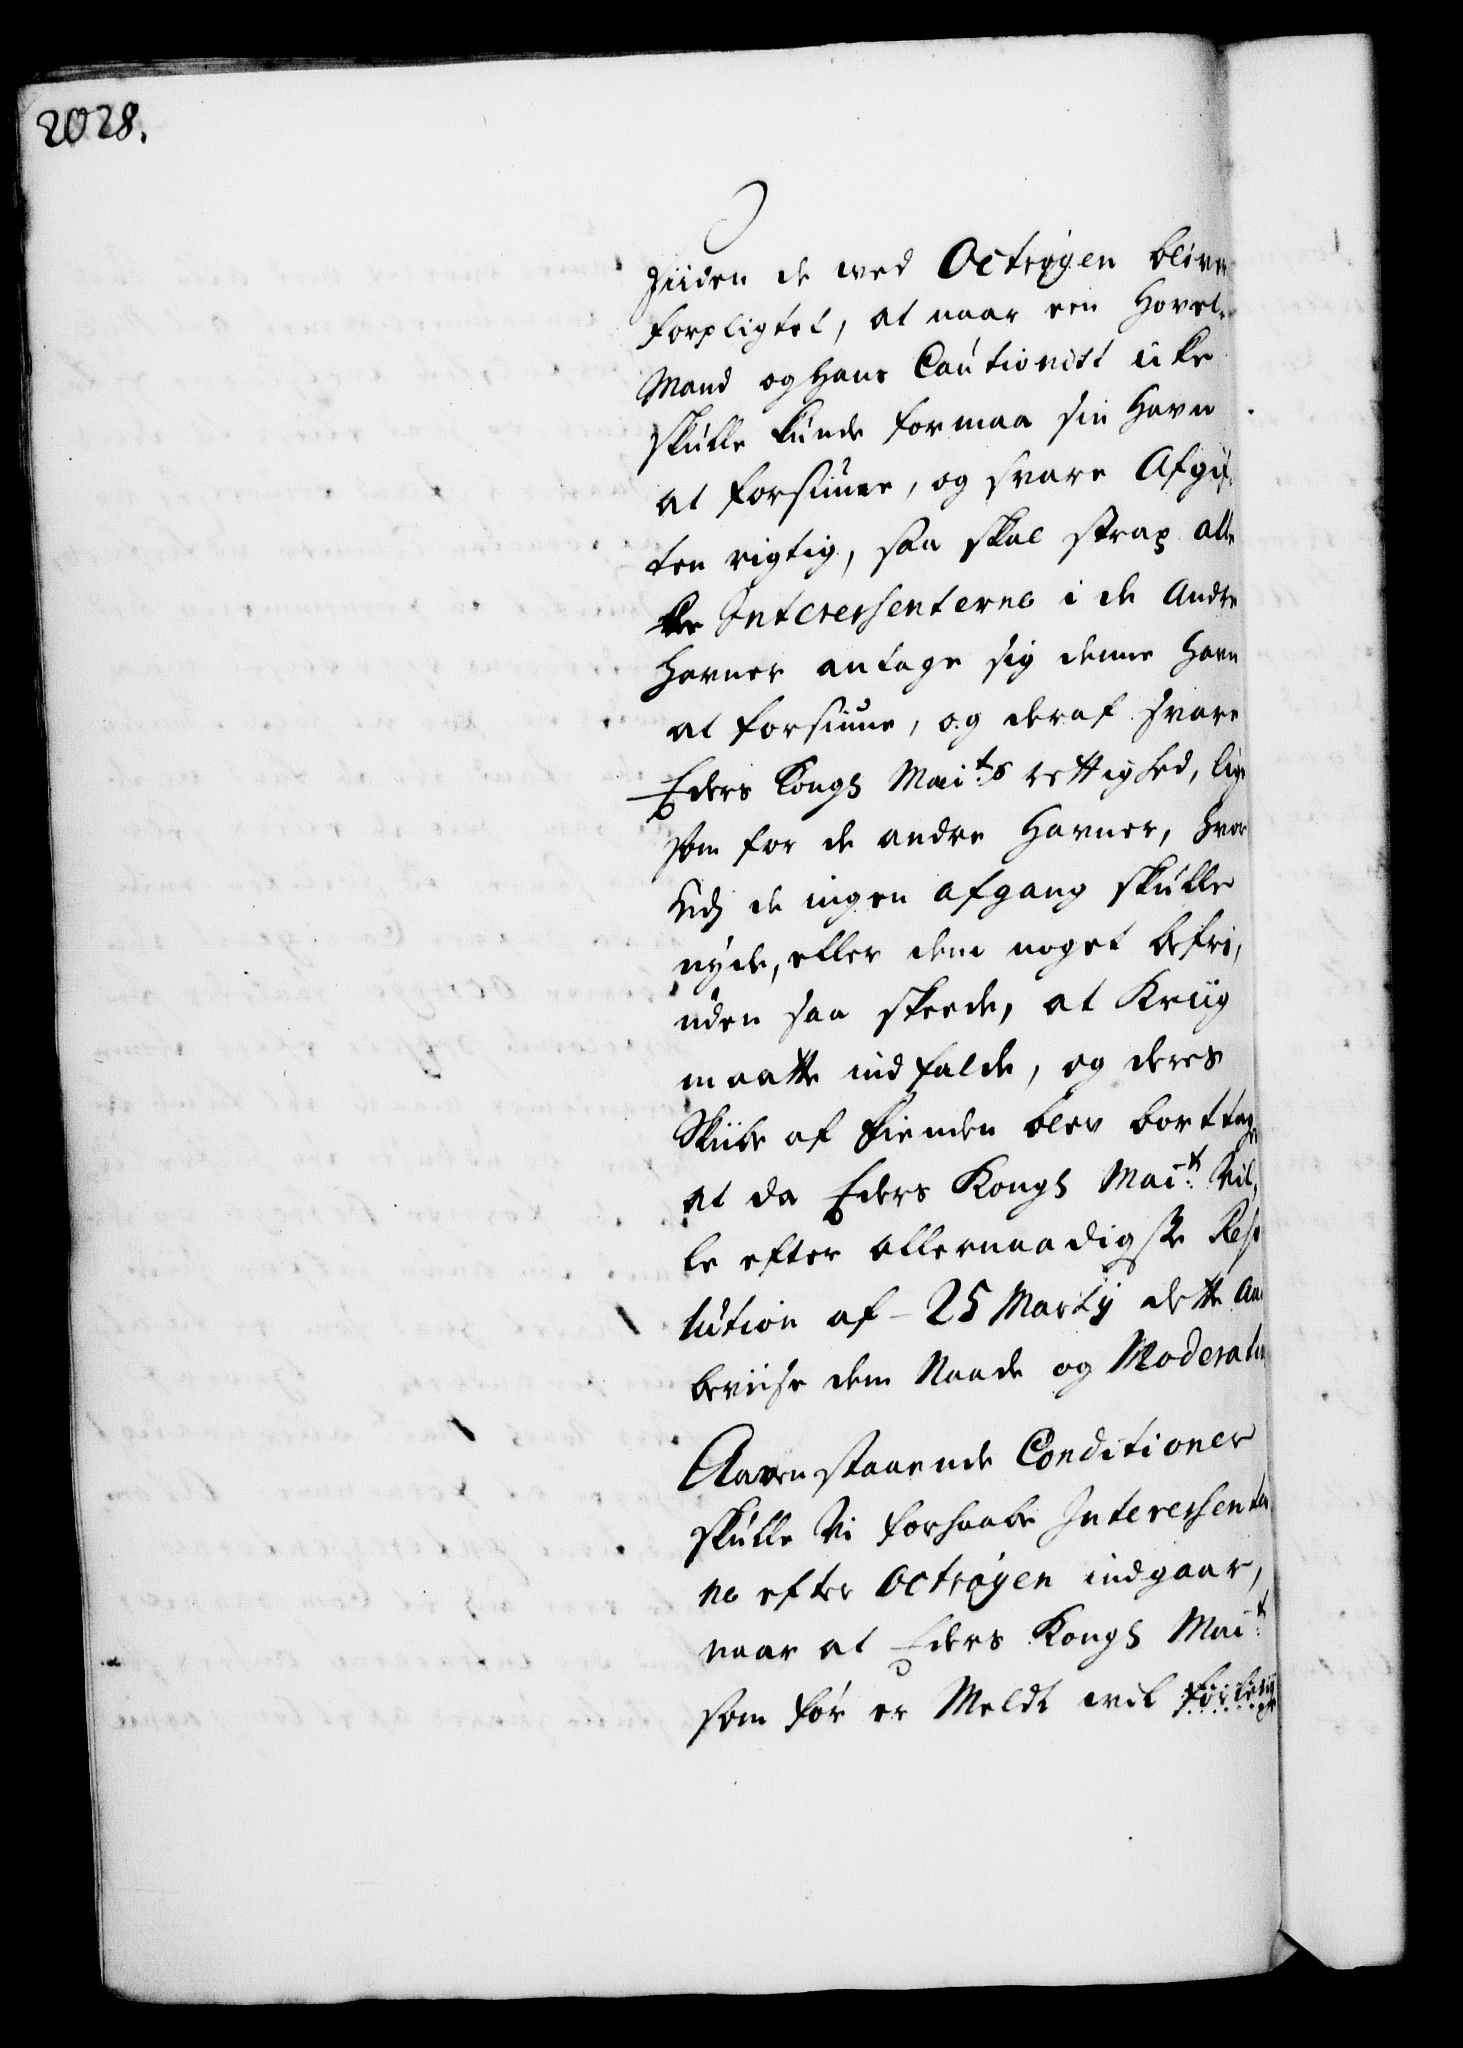 2028.
Siiden de wed Octrøÿen bliver
forpligtet, at naar een Hovet-
Mand og hans Cautionist icke
skulle kunde formaa sin Havn
at forsiune, og svare Afgif-
ten rigtig, saa skal strax alle
Interessenterne i de Andre
Havner antage sig denne Havn
at forsiune, og deraf svare
Eders Kongl Maits rettighed, lige
som for de andre Havner, hvor
ved de ingen afgang skulle
nyde, eller dem noget befri,
uden saa skeede, at Kriig
maatte indfalde, og deres
Skiibe af fienden blev borttagen
at da Eders Kongl Mait Vil-
le efter allernaadigste Reso
lution af 25 Martÿ dette Aar
beviise dem Naade og Moderation
Aavenstaaende Conditioner
skulle Vi forhaabe Interessenter
ne efter Octrøÿen indgaar,
naar at Eders Kongl Mait
som før er Meldt wil